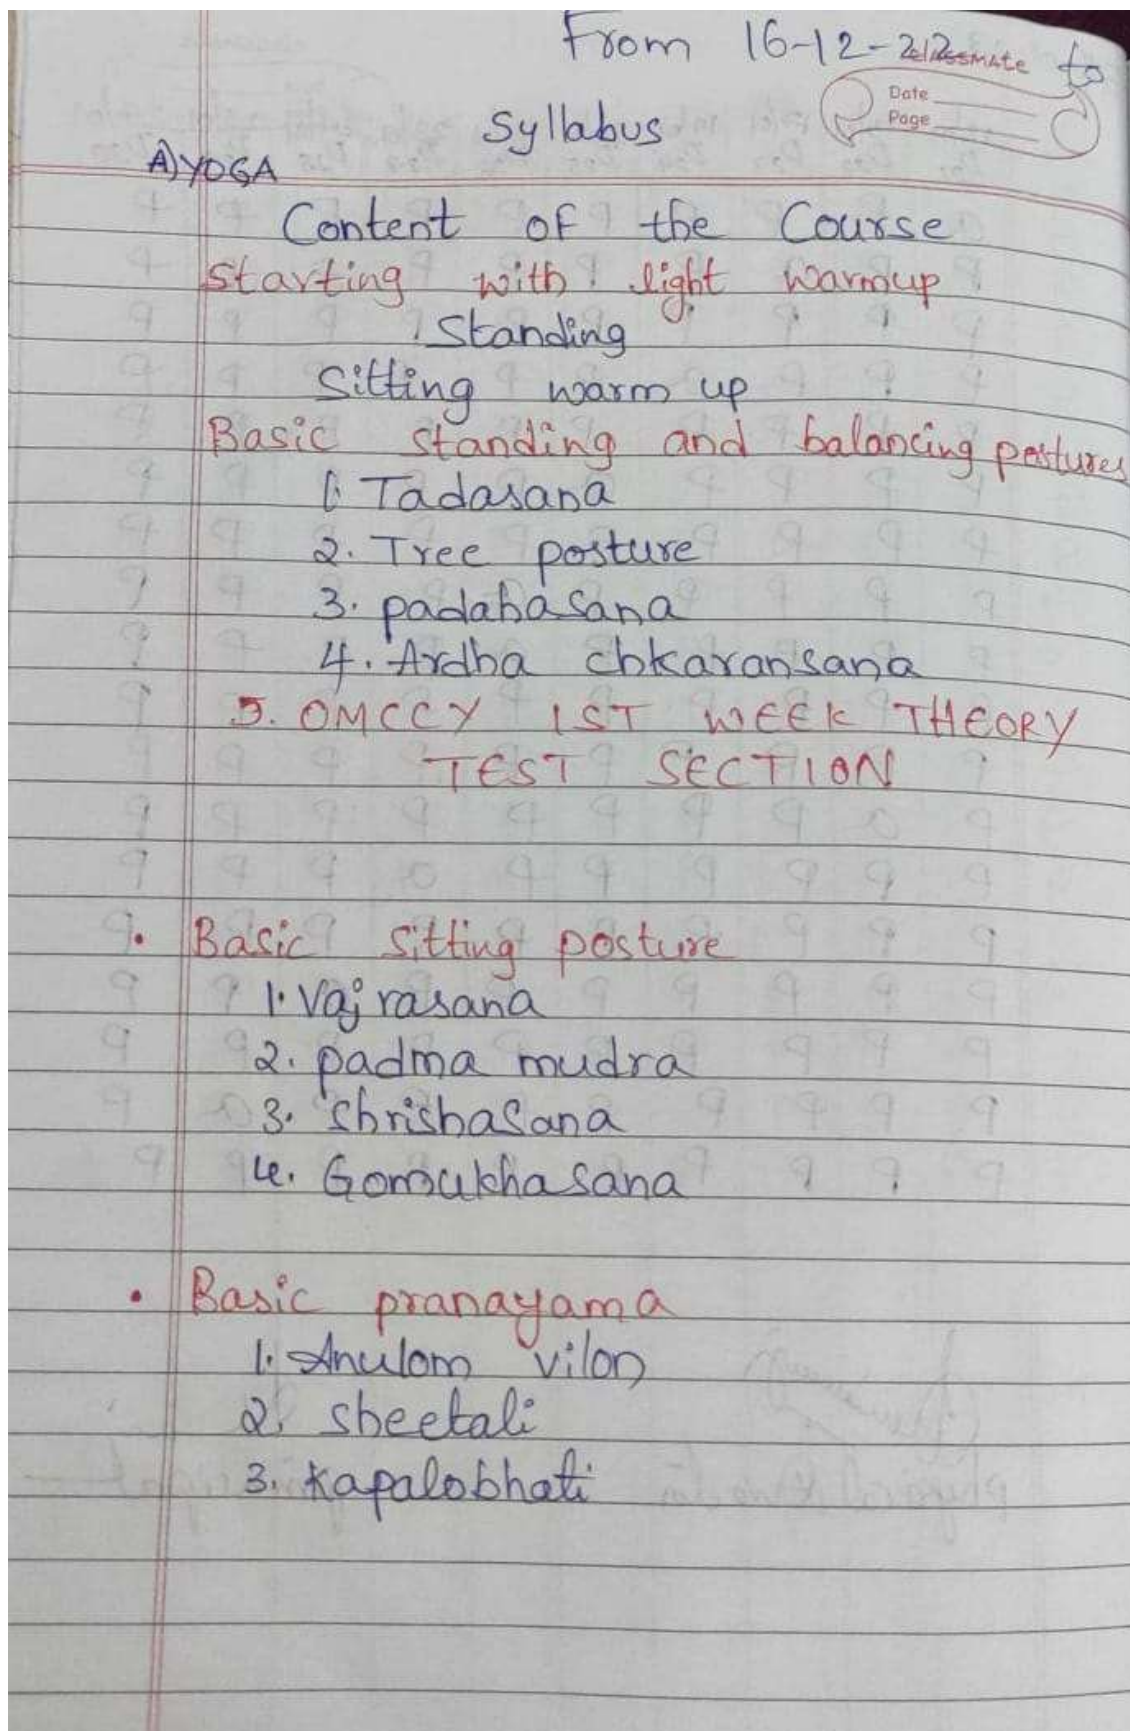 From 16-12-22 to
classmate
Date
Page
Syllabus
A) YOGA
Content of the Course
Starting with light warmup
Standing
Sitting warm up
Basic standing and balancing postures
1. Tadasana
2. Tree posture
3. padahasana
4. Ardha chkaransana
5. OMCCY 1ST WEEK THEORY
TEST SECTION
• Basic sitting posture
1. Vajrasana
2. padma mudra
3. Shrishasana
4. Gomukhasana
• Basic pranayama
1. Anulom vilom
2. sheetali
3. Kapalobhati